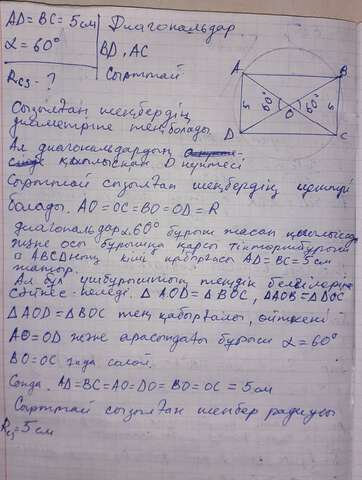 AD = BC = 5 см
α = 60°
Rсз - ?
Диагональдар
BD, AC
Сырттай
Сызылған шеңбердің
диаметріне тең болады
Ал диагональдардың
қиылысқан O нүктесі
Сырттай сызылған шеңбердің центрі
болады. AO = OC = BO = OD = R
диагональдар 60° бұрыш жасап қиылысады
және осы бұрышқа қарсы тіктөртбұрыш
ABCD ның кіші қабырғасы AD = BC = 5 см
жатыр.
Ал бұл үшбұрыштың теңдік белгілеріне
сәйкес келеді. △AOD = △BOC, △AOB = △DOC
△AOD = △BOC тең қабырғалы, өйткені
AO = OD және арасындағы бұрыш α = 60°
BO = OC
Сонда. AD = BC = AO = DO = BO = OC = 5 см
Сырттай сызылған шеңбер радиусы
Rсз = 5 см
A
B
5
60°
O
60°
5
D
C